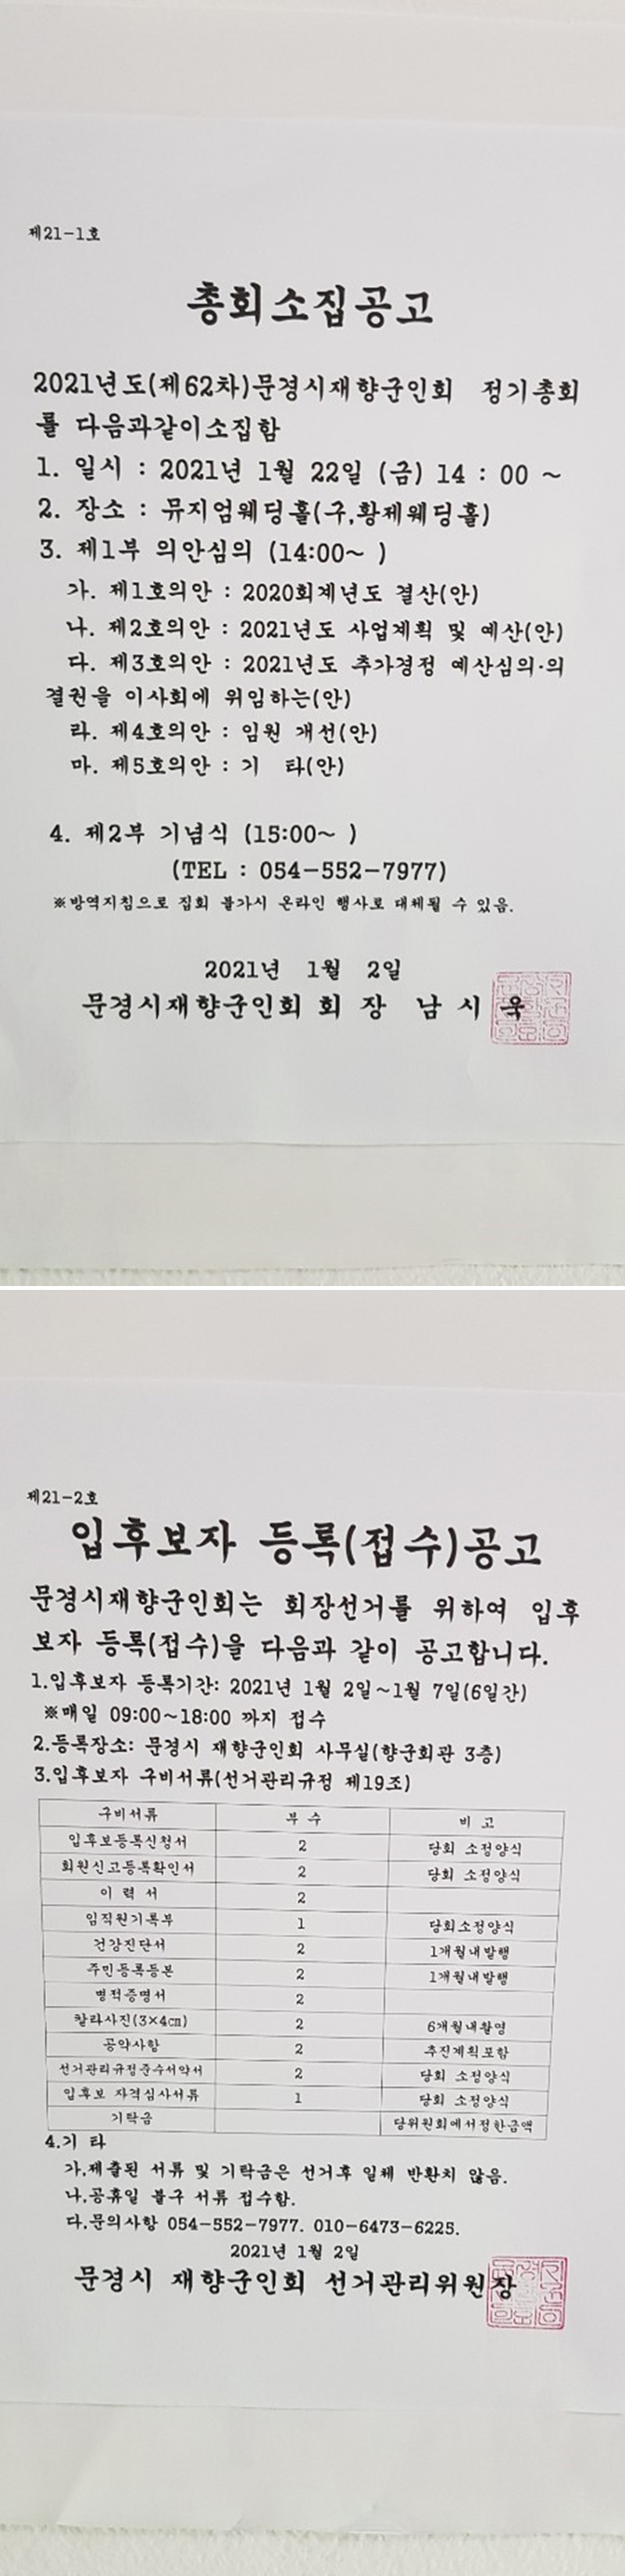 제21-1호
총회소집공고
2021년도(제62차)문경시재향군인회 정기총회
를 다음과같이소집함
1. 일시 : 2021년 1월 22일 (금) 14 : 00 ~
2. 장소 : 뮤지엄웨딩홀(구,황제웨딩홀)
3. 제1부 의안심의 (14:00~ )
가. 제1호의안 : 2020회계년도 결산(안)
나. 제2호의안 : 2021년도 사업계획 및 예산(안)
다. 제3호의안 : 2021년도 추가경정 예산심의·의
결권을 이사회에 위임하는(안)
라. 제4호의안 : 임원 개선(안)
마. 제5호의안 : 기 타(안)
4. 제2부 기념식 (15:00~ )
(TEL : 054-552-7977)
※방역지침으로 집회 불가시 온라인 행사로 대체될 수 있음.
2021년 1월 2일
문경시재향군인회 회 장 남 시 욱
제21-2호
입후보자 등록(접수)공고
문경시재향군인회는 회장선거를 위하여 입후
보자 등록(접수)을 다음과 같이 공고합니다.
1.입후보자 등록기간: 2021년 1월 2일~1월 7일(6일간)
※매일 09:00~18:00 까지 접수
2.등록장소: 문경시 재향군인회 사무실(향군회관 3층)
3.입후보자 구비서류(선거관리규정 제19조)
구비서류 부 수 비 고
입후보등록신청서 2 당회 소정양식
회원신고등록확인서 2 당회 소정양식
이 력 서 2
임직원기록부 1 당회소정양식
건강진단서 2 1개월내발행
주민등록등본 2 1개월내발행
병적증명서 2
칼라사진(3×4㎝) 2 6개월내촬영
공약사항 2 추진계획포함
선거관리규정준수서약서 2 당회 소정양식
입후보 자격심사서류 1 당회 소정양식
기탁금 당위원회에서정한금액
4.기 타
가.제출된 서류 및 기탁금은 선거후 일체 반환치 않음.
나.공휴일 불구 서류 접수함.
다.문의사항 054-552-7977. 010-6473-6225.
2021년 1월 2일
문경시 재향군인회 선거관리위원장